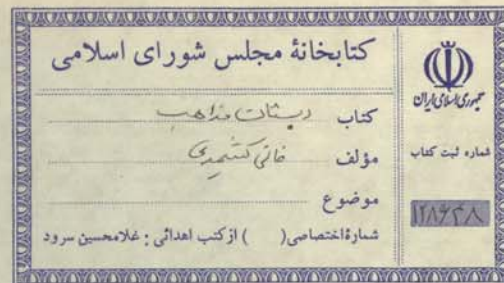 کتابخانهٔ مجلس شورای اسلامی
کتاب دبستان مذاهب
مؤلف فانی کشمیری
موضوع
شمارهٔ اختصاصی( ) از کتب اهدائی : غلامحسین سرود
جمهوری اسلامی ایران
شماره ثبت کتاب